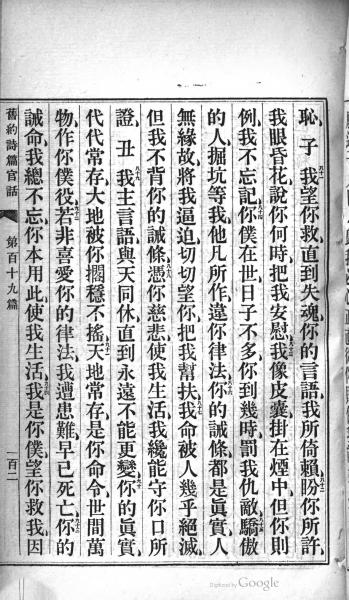 恥、子我望你救、直到失魂、你的言語、我所倚賴、盼你所許、
我眼昏花、說你何時把我安慰、我像皮囊掛在煙中、但你則
例、我不忘記、你僕在世日子不多、你到幾時罰我仇敵、驕傲
的人、掘坑等我、他凡所作、違你律法、你的誡條都是眞實、人
無緣故將我逼迫、切切望你把我幫扶、我命被人幾乎絕滅、
但我不背你的誡條、憑你慈悲使我生活、我纔能守你口所
證、丑我主言語與天同休、直到永遠不能更變、你的眞實
代代常存、大地被你擱穩不搖、天地常存、是你命令、世間萬
物作你僕役、若非喜愛你的律法、我遭患難早已死亡、你的
誡命、我總不忘、你本用此使我生活、我是你僕、望你救我、因
舊約詩篇官話 第百十九篇 一百二
Digitized by Google